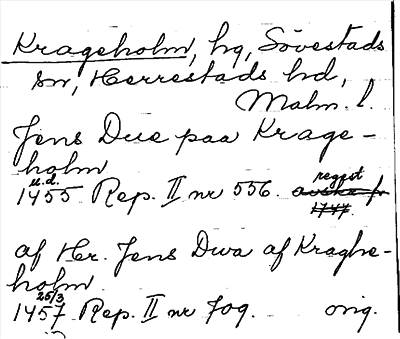 Krageholm, hg, Sövestads
sn, Herrestads hd,
Malm. l.
Jens Due paa Krage-
holm
u.d.
1455 Rep. II nr 556. regest
af Hr. Jens Dwa af Kraghe-
holm.
25/3
1457 Rep. II nr 709. orig.